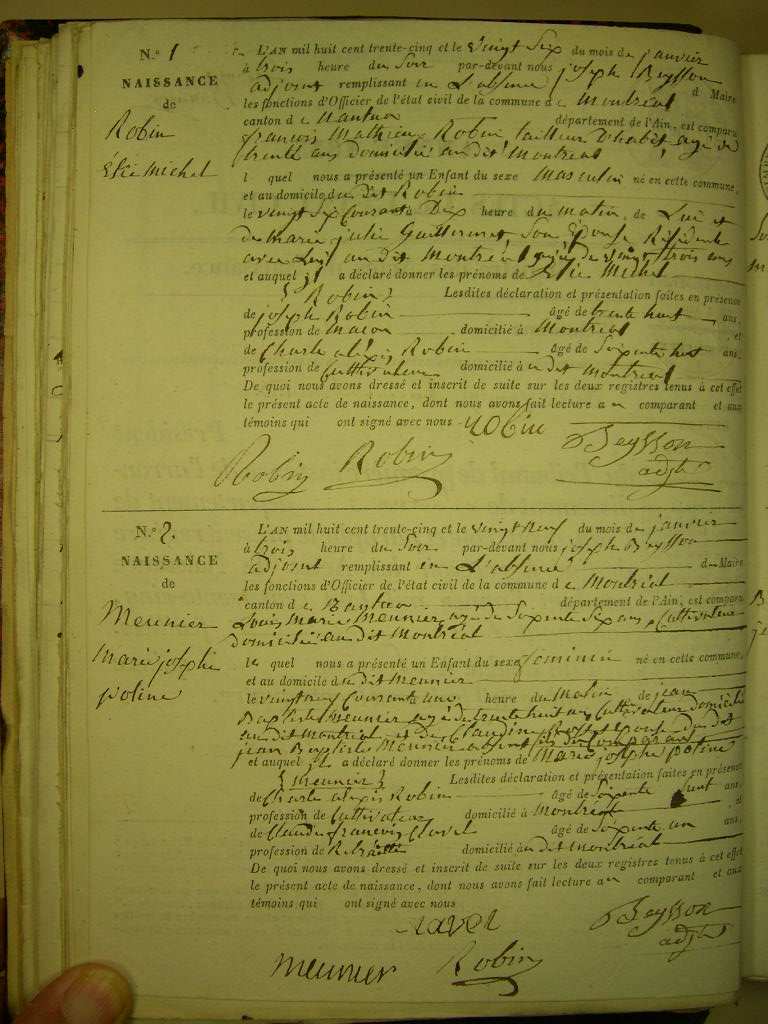 N.º 1
NAISSANCE
de
Robin
Élie michel
L'AN mil huit cent trente-cinq et le vingt Six du mois de janvier
à trois heure du Soir par-devant nous joseph Beysson
adjoint remplissant en L'absence d Maire
les fonctions d'Officier de l'état civil de la commune d e Montréal
canton d e Nantua département de l'Ain, est comparu
francois Mathieu Robin tailleur D'habit agé de
trente ans domicilié au dit Montreal
l quel nous a présenté un Enfant du sexe masculin né en cette commune,
et au domicile du dit Robin
le vingt Six Courant à Dix heure du matin, de Lui et
de marie julie Guillermet Son Épouse Résidente
avec Lui au dit Montréal agée de vingt trois ans
et auquel il a déclaré donner les prénoms de Élie Michel
{ Robin } Lesdites déclaration et présentation faites en présence
de joseph Robin âgé de trente huit ans,
profession de macon domicilié à Montréal et
de Charle aléxis Robin âgé de Soixente huit ans,
profession de Cultivateur domicilié à u dit Montreal
De quoi nous avons dressé et inscrit de suite sur les deux registres tenus à cet effet
le présent acte de naissance, dont nous avons fait lecture a u comparant et aux
témoins qui ont signé avec nous Robin
Robin Robin Beysson
adjt
N.º 2.
NAISSANCE
de
Meunier
marie josephe
poline
L'AN mil huit cent trente-cinq et le vingt neuf du mois de janvier
à trois heure du Soir par-devant nous joseph Beysson
adjoint remplissant en L'absence d Maire
les fonctions d'Officier de l'état civil de la commune d e Montréal
canton d e Nantua département de l'Ain, est comparu
Louis marie Meunier agé de Soixente Six ans, Cultivateur
domicilié au dit Montréal
le quel nous a présenté un Enfant du sexe féminin né en cette commune,
et au domicile du dit Meunier
le vingt neuf Courant à une heure du Matin de jean
Baptiste Meunier agé de trente huit ans Cultivateur domicilié
au dit montréal et de Claudine épouse du dit
jean Baptiste Meunier absent fils du Comparant
et auquel il a déclaré donner les prénoms de Marie josephe poline
{ meunier } Lesdites déclaration et présentation faites en présence
de Charle aléxis Robin âgé de Soixente huit ans,
profession de Cultivateur domicilié à Montréal et
de Claude francois Clavel âgé de Soixente un ans
profession de Retraité domicilié à u dit Montréal
De quoi nous avons dressé et inscrit de suite sur les deux registres tenus à cet effet
le présent acte de naissance, dont nous avons fait lecture a u comparant et aux
témoins qui ont signé avec nous
Clavel Beysson
adjt
meunier Robin